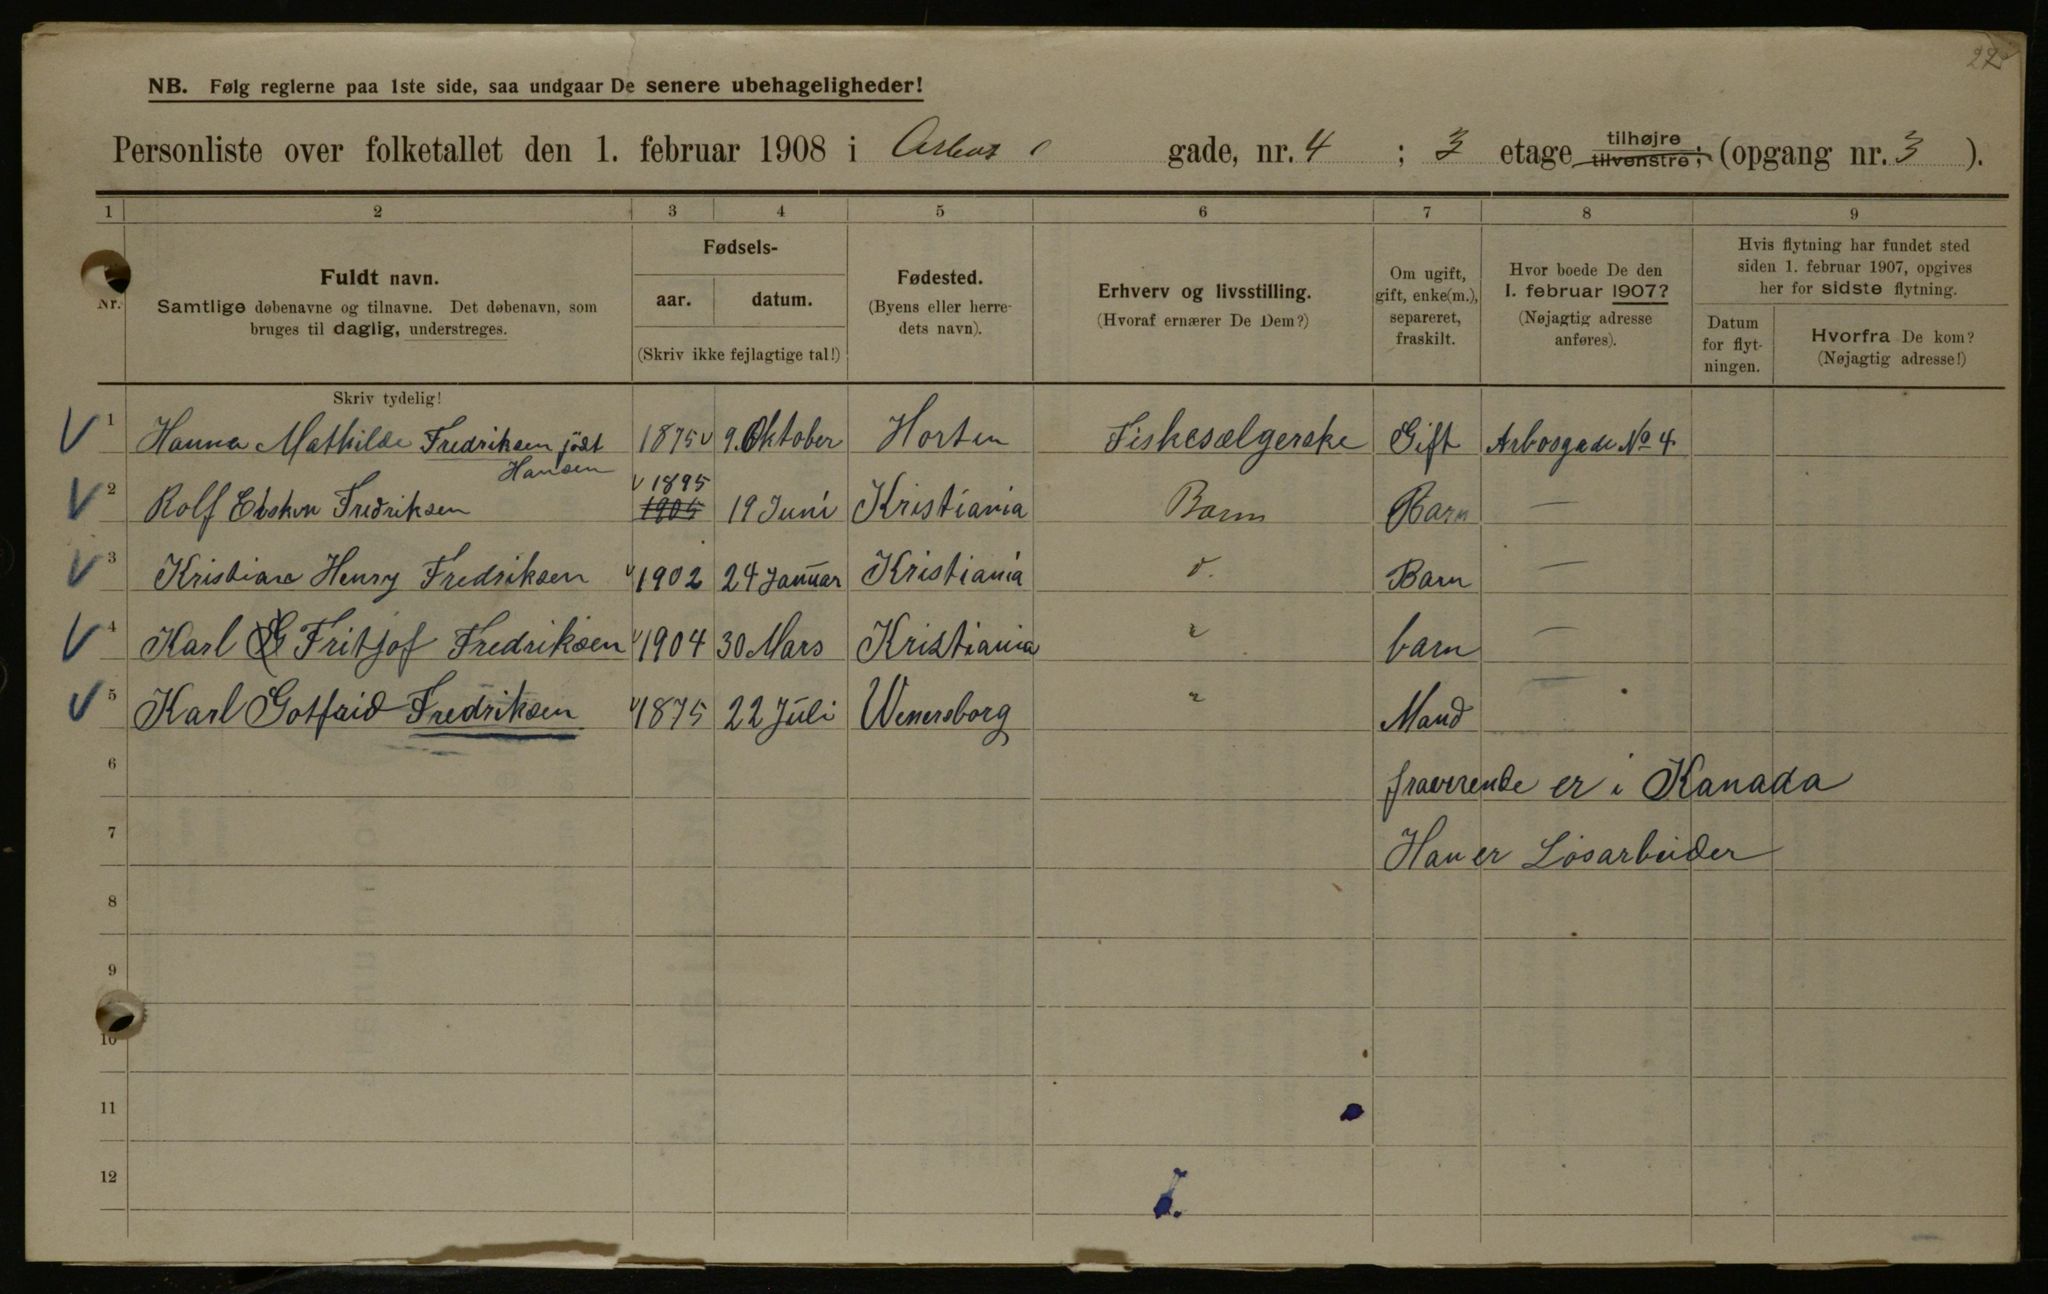 NB. Følg reglerne paa 1ste side, saa undgaar De senere ubehageligheder!
Personliste over folketallet den 1. februar 1908 i Arbos gade, nr. 4 ; 3 etage tilhøjre tilvenstre; (opgang nr. 3 ).
1 2 3 4 5 6 7 8 9
Nr.
Fuldt navn.
Samtlige døbenavne og tilnavne. Det døbenavn, som
bruges til daglig, understreges.
Skriv tydelig!
Fødsels-
aar. datum.
(Skriv ikke fejlagtige tal!)
Fødested.
(Byens eller herre-
dets navn).
Erhverv og livsstilling.
(Hvoraf ernærer De Dem?)
Om ugift,
gift, enke(m.),
separeret,
fraskilt.
Hvor boede De den
1. februar 1907?
(Nøjagtig adresse
anføres).
Hvis flytning har fundet sted
siden 1. februar 1907, opgives
her for sidste flytning.
Datum
for flyt-
ningen.
Hvorfra De kom?
(Nøjagtig adresse!)
1 Hanna Mathilde Fredriksen født Hansen 1875 9. Oktober Horten Fiskesælgerske Gift Arbosgade No 4
2 Rolf Fredriksen 1895 19 Juni Kristiania Barn Barn —
3 Kristian Henry Fredriksen 1902 24 Januar Kristiania d. Barn —
4 Karl G Fritjof Fredriksen 1904 30 Mars Kristiania " barn —
5 Karl Gotfrid Fredriksen 1875 22 Juli Wenersborg " Mand
6 fraverende er i Kanada
7 Han er Løsarbeider
8
9
10
11
12